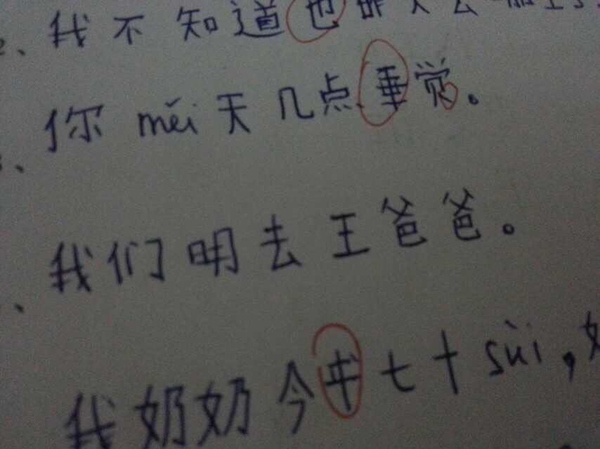 我不知道他昨天去
你 měi 天几点垂觉。
我们明去王爸爸。
我奶奶今年七十 suì,